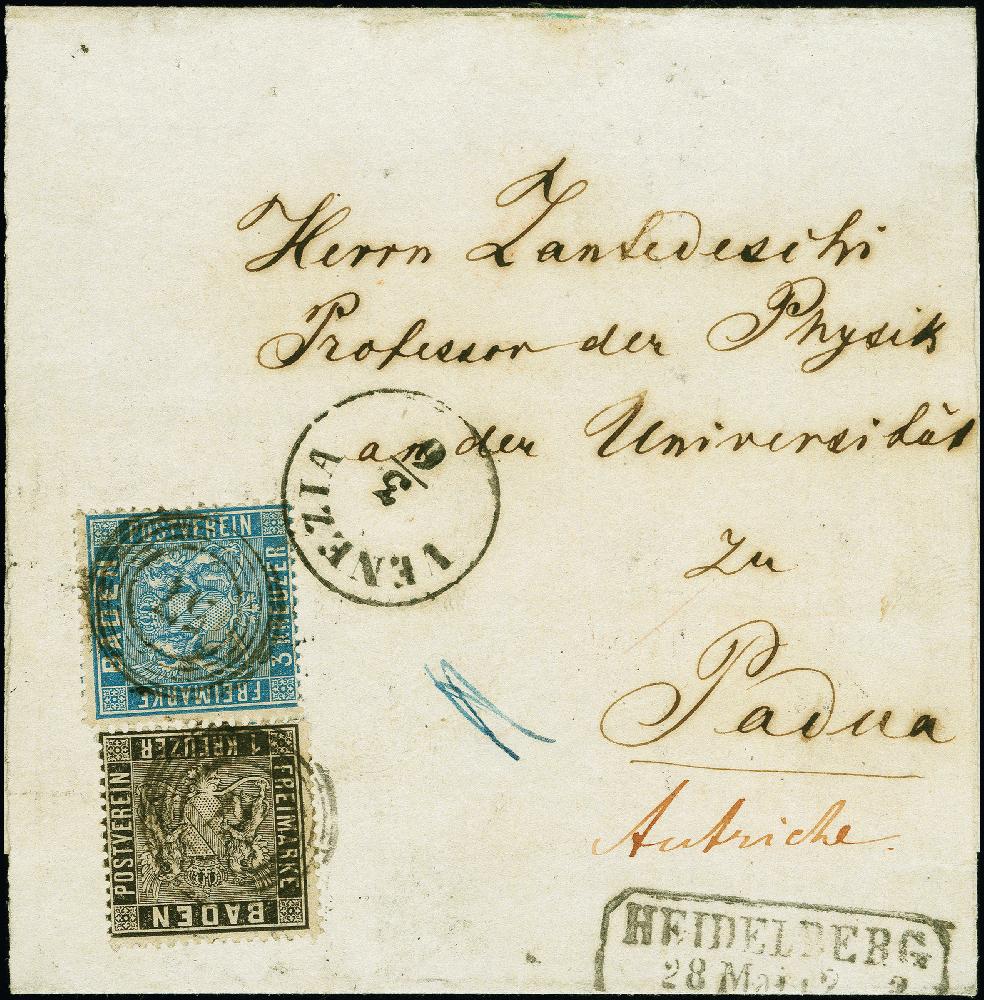 Herrn Zantedeschi
Professor der Physik
an der Universität
zu
Padua
Autriche.
VENEZIA
3/6
POSTVEREIN
BADEN
3 KREUZER
FREIMARKE
1 KREUZER
POSTVEREIN
FREIMARKE
BADEN
HEIDELBERG
28 Mai